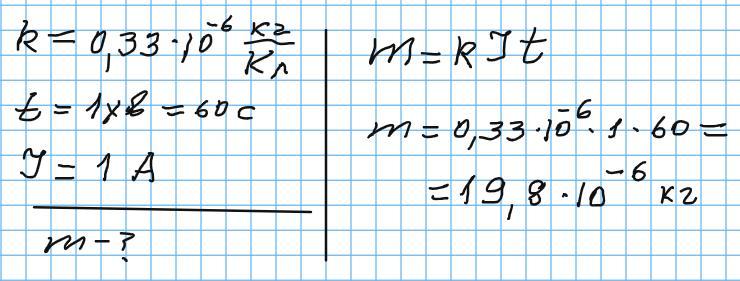 k = 0,33·10⁻⁶ кг/Кл
t = 1 хв = 60 с
I = 1 А
m – ?
m = k I t
m = 0,33·10⁻⁶·1·60 =
= 19,8·10⁻⁶ кг